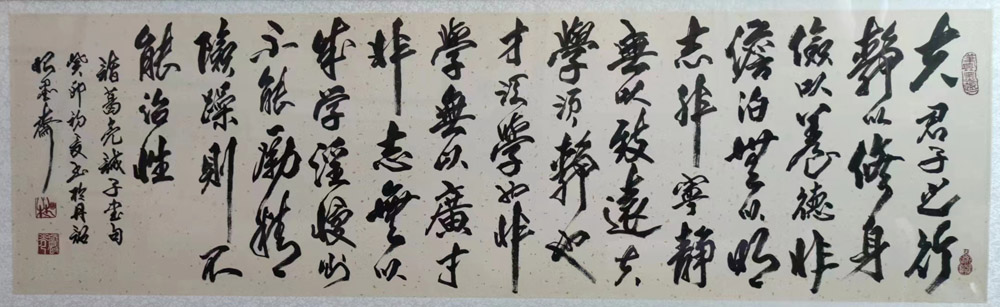 夫君子之行
静以修身
儉以養德非
澹泊無以明
志非寧静
無以致遠夫
學須静也
才須學也非
學無以廣才
非志無以
成学淫慢則
不能勵精
險躁則不
能治性
諸葛亮誡子書句
癸卯初夏書於丹